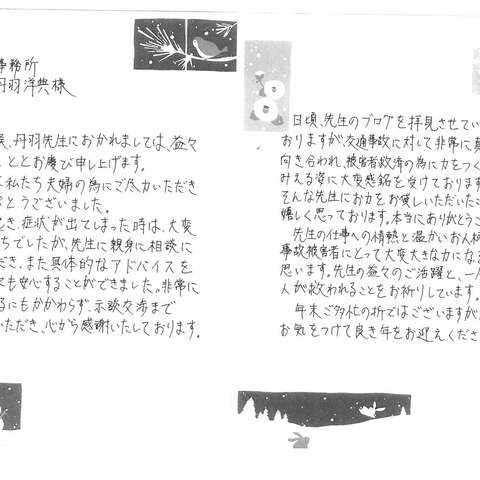 事務所
丹羽洋典様
、丹羽先生におかれましては、益々
こととお慶び申し上げます。
私たち夫婦の為にご尽力いただき
とうございました。
き、症状が出てしまった時は、大変
ちでしたが、先生に親身に相談に
だき、また具体的なアドバイスを
ても安心することができました。非常に
るにもかかわらず、示談交渉まで
いただき、心から感謝いたしております。
日頃、先生のブログを拝見させてい
おりますが、交通事故に対して非常に真
向き合われ、被害者救済の為に力をつく
みえる姿に大変感銘を受けております
そんな先生にお力をお貸しいただいたこ
嬉しく思っております。本当にありがとうご
先生の仕事への情熱と温かいお人柄
事故被害者にとって大変大きな力になる
思います。先生の益々のご活躍と、一人
人が救われることをお祈りしています。
年末ご多忙の折ではございますが
お気をつけて良き年をお迎えくださ